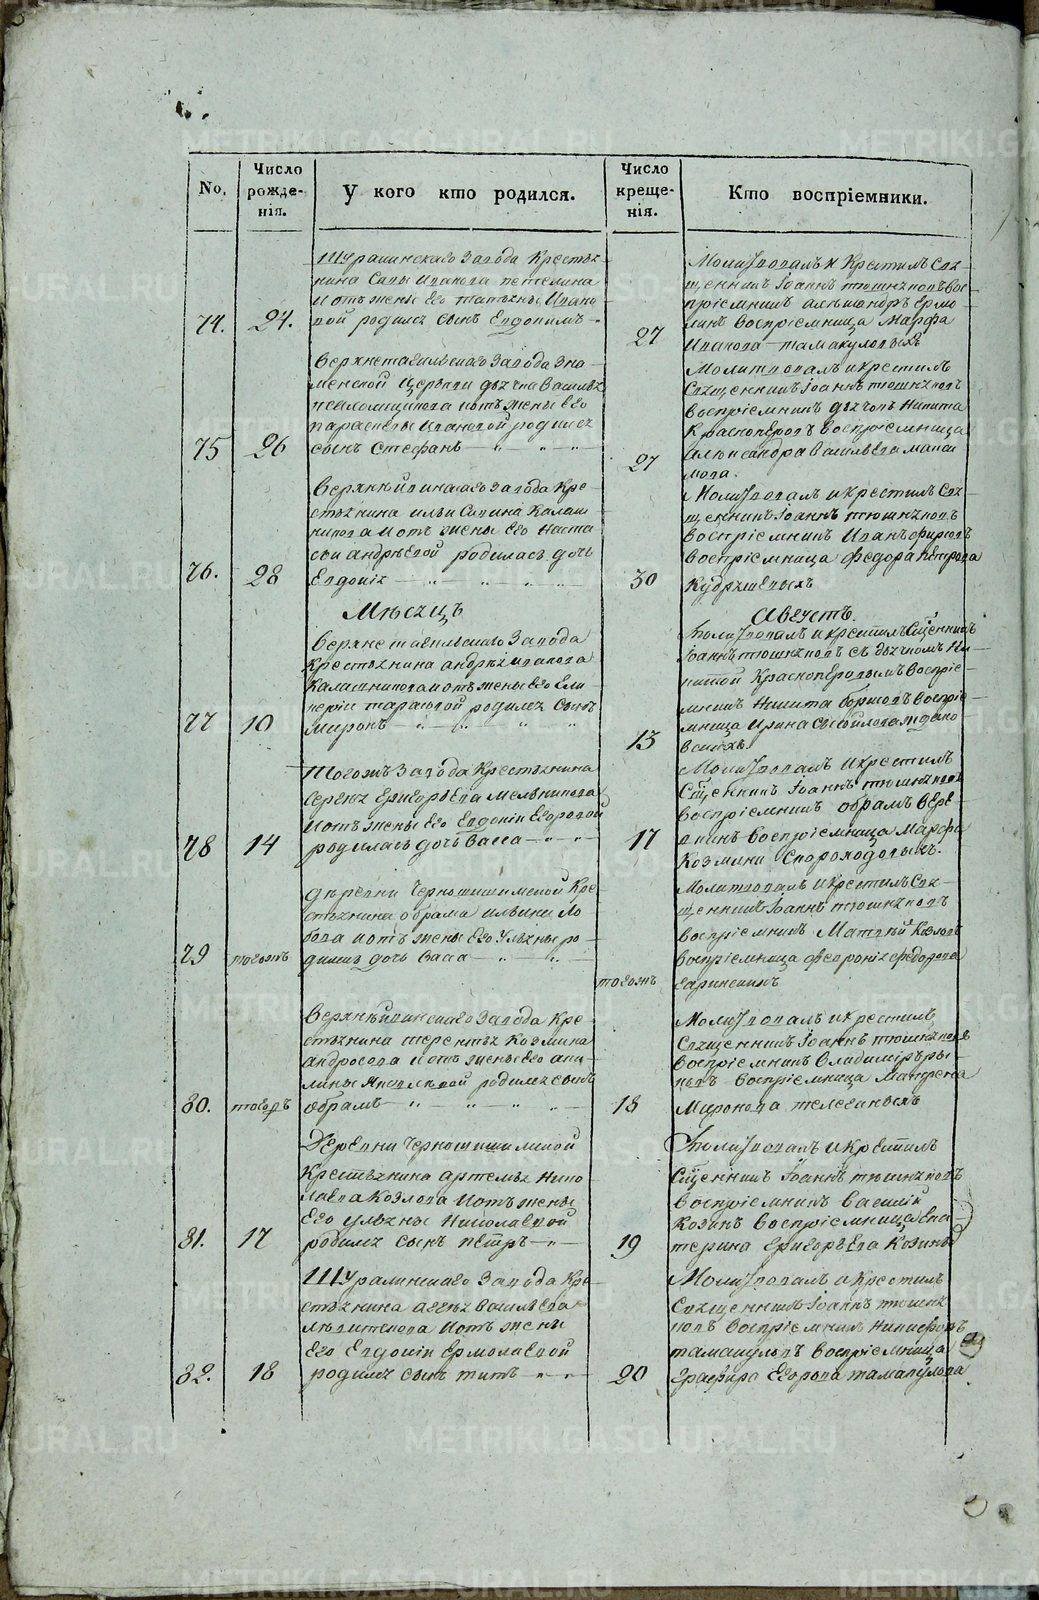 No.
Число рожде-
нія.
У кого кто родился.
Число креще-
нія.
Кто воспріемники.
74.
24.
Шуралинскаго Завода Крестья-
нина Савы Иванова
и отъ жены его Татьяны Ивано
вой родился сынъ Евдокимъ
27
Молитвовалъ и Крестилъ Свя-
щенникъ Іоаннъ Тюшняковъ Вос-
пріемникъ Александръ Ермо
линъ Воспріемница Марфа
Иванова Тамакуловыхъ
75
26
Верхнетагильскаго Завода Зна-
менской Церкви дьячка Василья
и отъ жены его
Параскевы Ивановой родился
сынъ Стефанъ
27
Молитвовалъ и крестилъ
Священникъ Іоаннъ Тюшняковъ
Воспріемникъ дьячокъ Никита
Красноперовъ Воспріемница
Александра Васильева
76.
28
Верхнейвинскаго Завода Кре-
стьянина Ильи Савина Калаш
никова и отъ жены его Наста
сьи Андреевой родилась дочь
Евдокія
30
Молитвовалъ и крестилъ Свя-
щенникъ Іоаннъ Тюшняковъ
Воспріемникъ Иванъ Фирсовъ
Воспріемница Федора Петрова
Кудряшевыхъ
Мѣсяцъ
Августъ.
77
10
Верхнетагильскаго Завода
Крестьянина Андрея Иванова
Калашникова и отъ жены его Гли
керіи Тарасовой родился сынъ
Миронъ
13
Молитвовалъ и крестилъ Сщенникъ
Іоаннъ Тюшняковъ съ дьячкомъ Ни-
китой Красноперовымъ Воспріе-
мникъ Никита Борисовъ Воспріе-
мница Ирина
78
14
Тогожъ Завода Крестьянина
Сергея Григорьева Мельникова
и отъ жены его Евдокіи Егоровой
родилась дочь Васса
17
Молитвовалъ и крестилъ
Сщенникъ Іоаннъ Тюшняковъ
воспріемникъ Обрамъ Вере
Воспріемница Марфа
Козмина Скороходовыхъ.
79
тогожъ
Деревни Черношишимской Кре-
стьянина Обрама Ильина Ло
бова и отъ жены его Ульяны ро
дилась дочь Васса
тогожъ
Молитвовалъ и крестилъ Свя-
щенникъ Іоаннъ Тюшняковъ
Воспріемникъ Матвѣй Козловъ
Воспріемница Феронія Федорова
80.
тогожъ
Верхнейвинскаго Завода Кре-
стьянина Терентья Козмина
Андросова и отъ жены его Аки-
лины Яковлевой родился сынъ
Обрамъ
18
Молитвовалъ и крестилъ
Священникъ Іоаннъ Тюшняковъ
Воспріемникъ Владимиръ
Воспріемница Матрена
Миронова Телегиныхъ
81.
17
Деревни Черношишимской
Крестьянина Артемья Нико
лаева Козлова и отъ жены
его Ульяны Николаевой
родился сынъ Петръ
19
Молитвовалъ и крестилъ
Сщенникъ Іоаннъ Тюшняковъ
Воспріемникъ Василій
Козинъ Воспріемница Ека
терина Григорьева Козина
82.
18
Шуралинскаго Завода Кре-
стьянина Агея Васильева
и отъ жены
его Евдокіи Ермолаевой
родился сынъ Титъ
20
Молитвовалъ и Крестилъ
Священникъ Іоаннъ Тюшня
ковъ Воспріемникъ Никифоръ
Тамакуловъ Воспріемница
Глафира Егорова Тамакулова
METRIKI.GASO-URAL.RU